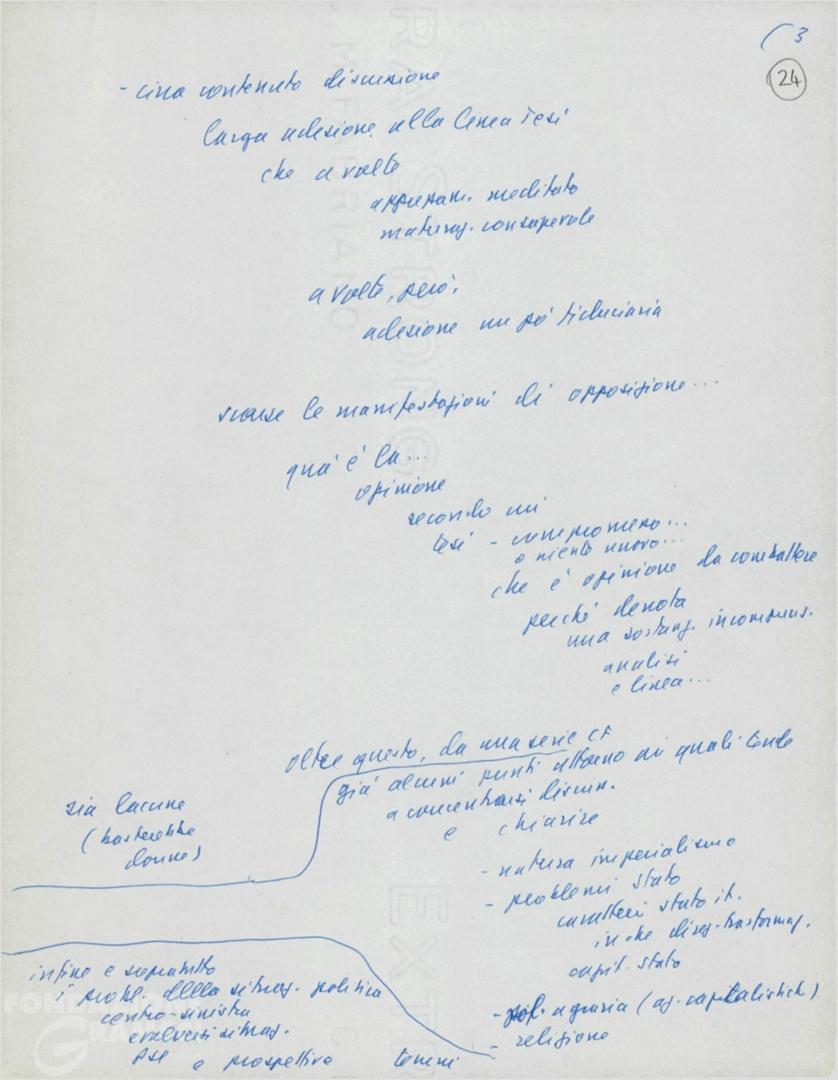 ( 3
24
- circa contenuto discussione
larga adesione alla linea Tesi
che a volte
approvam. meditato
maturaz. consapevole
a volte, però,
adesione un pò fiduciaria
scarse le manifestazioni di opposizione...
qua è la...
opinione
secondo cui
tesi - compromesso...
o niente nuovo...
che è opinione da combattere
perché denota
una sostanz. incomprens.
analisi
e linea...
oltre questo, da una serie CF
già alcuni punti attorno ai quali tende
a concentrarsi discuss.
e chiarire
sia lacune
(basterebbe
donne)
- natura imperialismo
- problemi stato
caratteri stato it.
in che direz. trasformaz.
capit. stato
- agraria (az. capitalistich)
- religione
infine e sopratutto
i probl. della situaz. politica
centro-sinistra
evolversi situaz.
e prospettive
temi
FONDAZIONE
GRAMSCI
EXTRA STRONG
FABRIANO